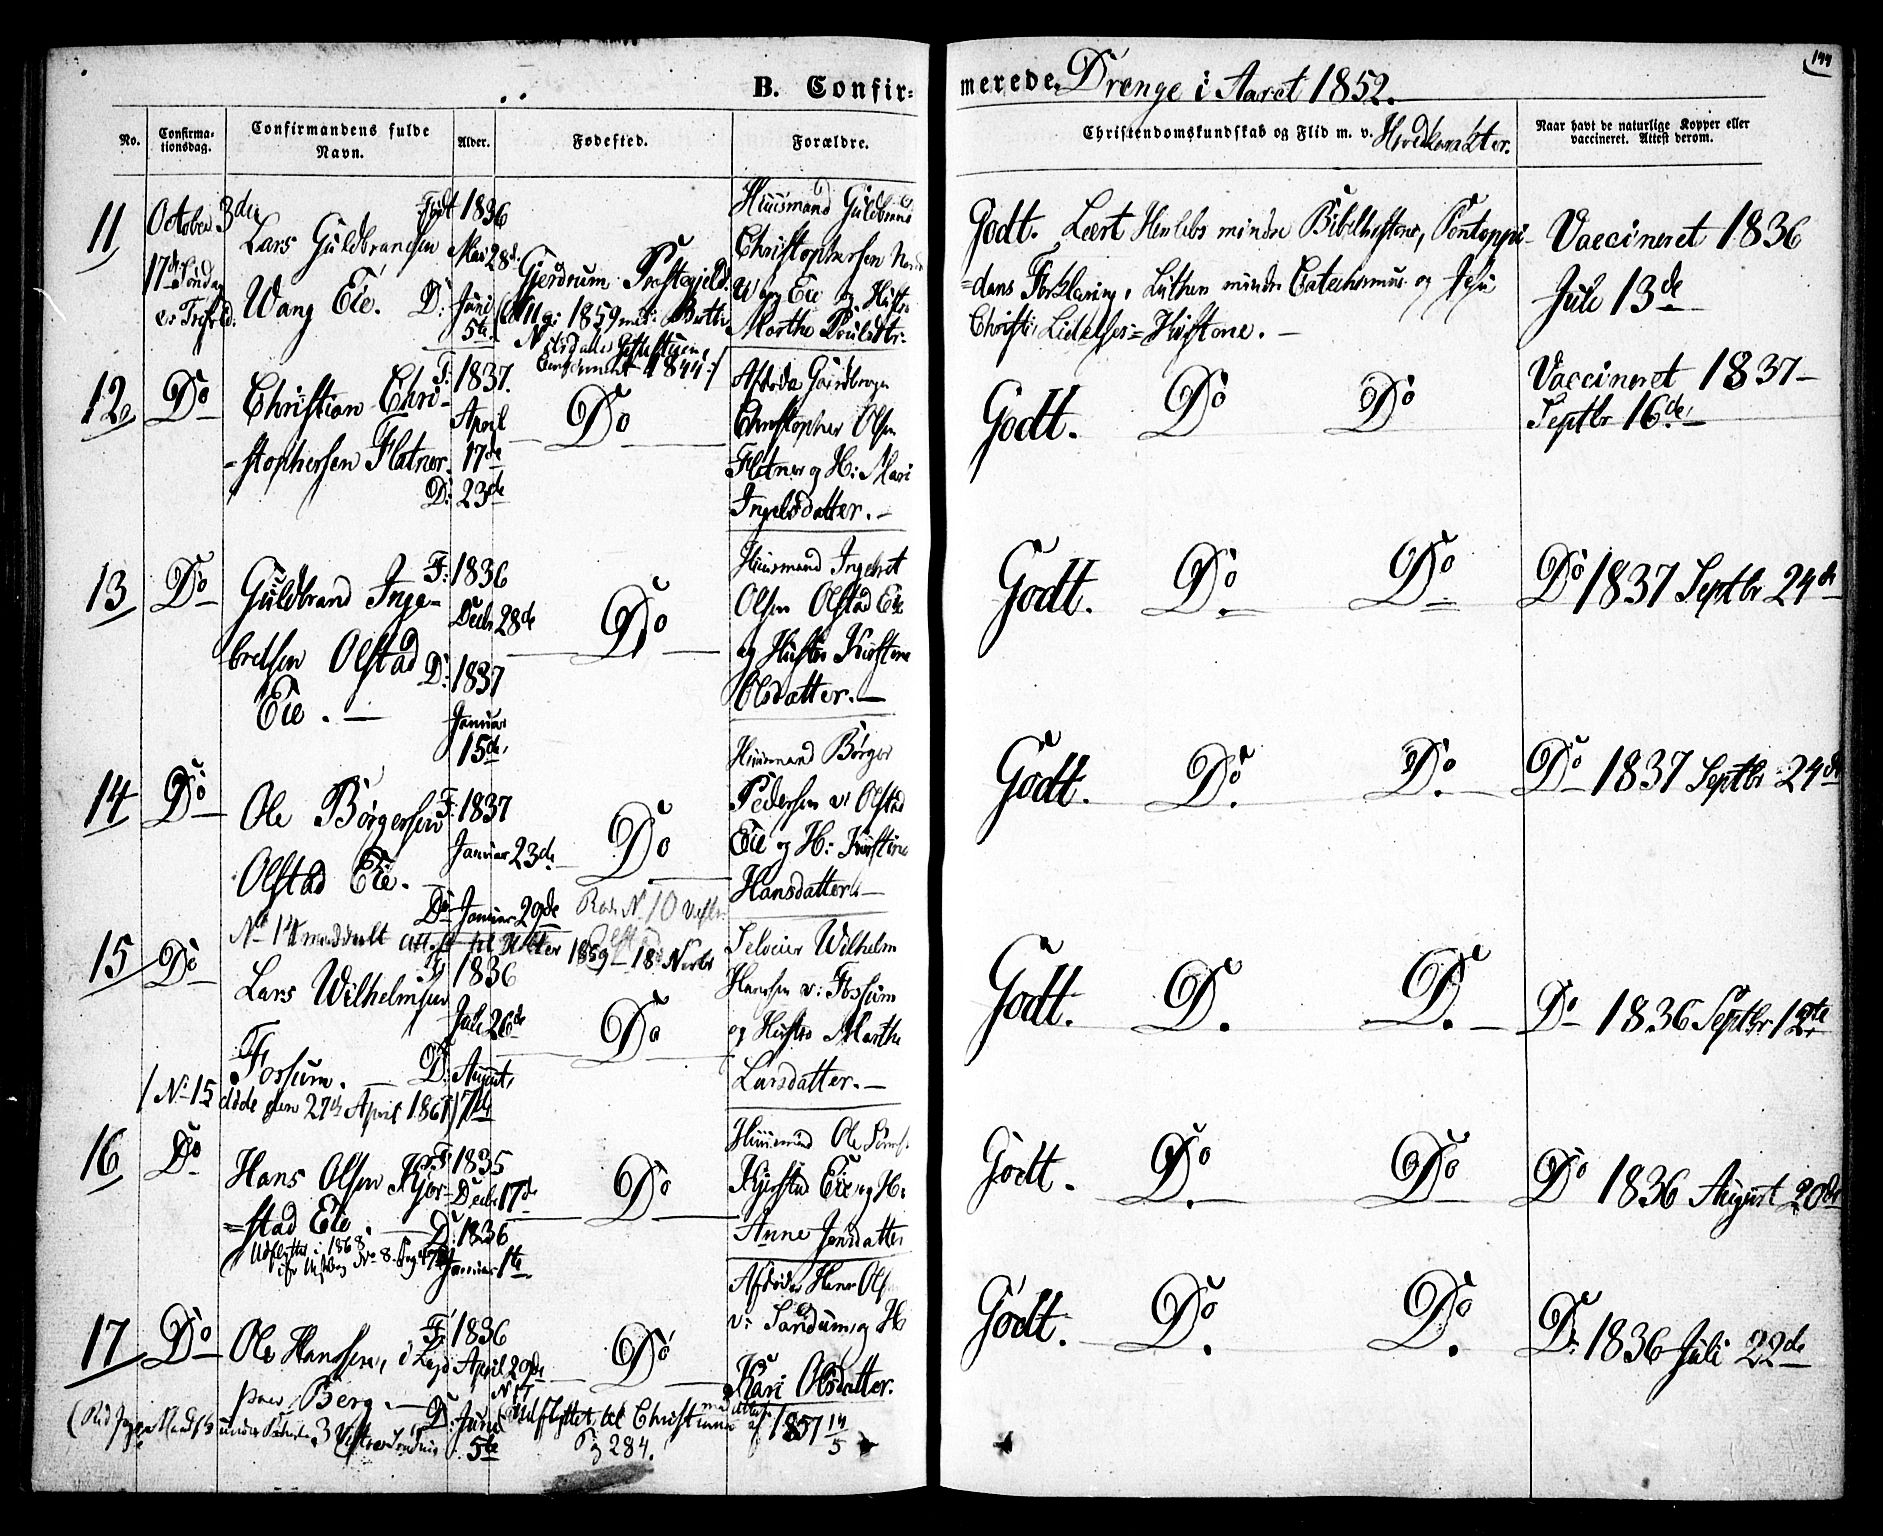 144
B. Confir-
merede Drenge i Aaret 1852.
No.
Confirma-
tionsdag.
Confirmandens fulde
Navn.
Alder.
Fødested.
Forældre.
Christendomskundskab og Flid m. v.
Naar havt de naturlige Kopper eller
vaccineret. Attest derom.
11
October 3die
17de Søndag
Lars Guldbrandsen
Wang Eie.
Født 1836
Mai 28de
D: Juni
5te
Gjerdrum Præstegjeld.
1859
1844
Huusmand Guldbrand
Christophersen
Wang Eie og Hustru
Marthe Poulsdtr.
Godt. Læst mindre Bibelhistorie, Pontoppi-
dans Forklaring, Luthers mindre Catechismus og Jesu
Christi Lidelses-Historie.
Vaccineret 1836
Juli 13de
12
Do
Christian Chri-
stophersen Flatner.
F: 1837.
April
17de
D: 23de
Do
Christopher Olsen
Flatner og H: Mari
Ingelsdatter.
Godt. Do Do
Vaccineret 1837
Septbr 16de
13
Do
Guldbrand Inge-
bretsen Olstad
Eie.
F: 1836
Decbr 28de
D: 1837
Januar
15de
Do
Huusmand Ingebret
Olsen Olstad Eie
og Hustru Kirstine
Olsdatter.
Godt. Do Do
Do 1837 Septbr 24de
14
Do
Ole Børgersen
Olstad Eie.
F: 1837
Januar 23de
Do Januar 29de
Do
Huusmand Børger
Pedersen v: Olstad
Eie og H: Kirstine
Hansdatter.
No 14 meddeelt Attest til 1859
Godt. Do Do
Do 1837 Septbr 24de
15
Do
Lars Wilhelmsen
Fossum.
F: 1836
Juli 26de
D: August
7de
Do
Selveier Wilhelm
Hansen v: Fossum
og Hustru Marthe
Larsdatter.
No 15 døde den 27de April 1861
Godt. Do. Do.
Do 1836 Septbr 12te
16
Do
Hans Olsen Kjer-
stad Eie.
F: 1835
Decbr 17de
D: 1836
Januar 1te
Do
Huusmand Ole
Kjerstad Eie og H:
Anne Jensdatter
Udflyttet i 1868
Godt. Do. Do
Do 1836 August 20de
17
Do
Ole Hanssen, i
paa Berg.
F: 1836
April 29de
D: Juni
5te
Do
Afdøde Hans Olsen
v: Sandum og H:
Kari Olsdatter.
No 17
Udflyttet til Christiania 1857 14/5
284.
Godt. Do. Do.
Do: 1836 Juli 22de